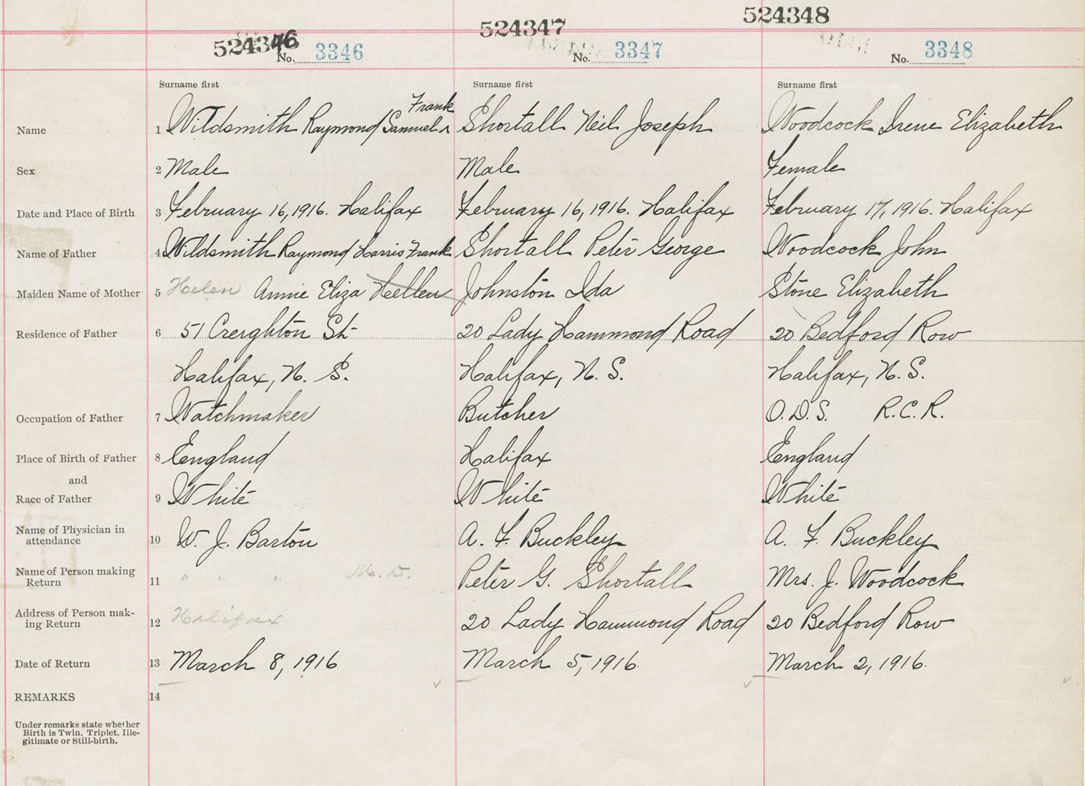 524346 524347 524348
No. 3346 No. 3347 No. 3348
Surname first Surname first Surname first
Frank
Name 1 Wildsmith Raymond Samuel ^ Shortall Neil Joseph Woodcock Irene Elizabeth
Sex 2 Male Male Female
Date and Place of Birth 3 February 16, 1916. Halifax February 16, 1916. Halifax February 17, 1916. Halifax
Name of Father 4 Wildsmith Raymond Harris Frank Shortall Peter George Woodcock John
Maiden Name of Mother 5 Helen Annie Eliza Hellen Johnston Ida Stone Elizabeth
Residence of Father 6 51 Creighton St. 20 Lady Hammond Road 20 Bedford Row
Halifax, N. S. Halifax, N. S. Halifax, N. S.
Occupation of Father 7 Watchmaker Butcher O.D.S. R.C.R.
Place of Birth of Father 8 England Halifax England
and
Race of Father 9 White White White
Name of Physician in attendance 10 W. J. Barton A. F. Buckley A. F. Buckley
Name of Person making Return 11 " " " M. D. Peter G. Shortall Mrs. J. Woodcock
Address of Person mak-ing Return 12 Halifax 20 Lady Hammond Road 20 Bedford Row
Date of Return 13 March 8, 1916 March 5, 1916. March 2, 1916.
REMARKS 14
Under remarks state whether
Birth is Twin, Triplet, Ille-
gitimate or Still-birth.